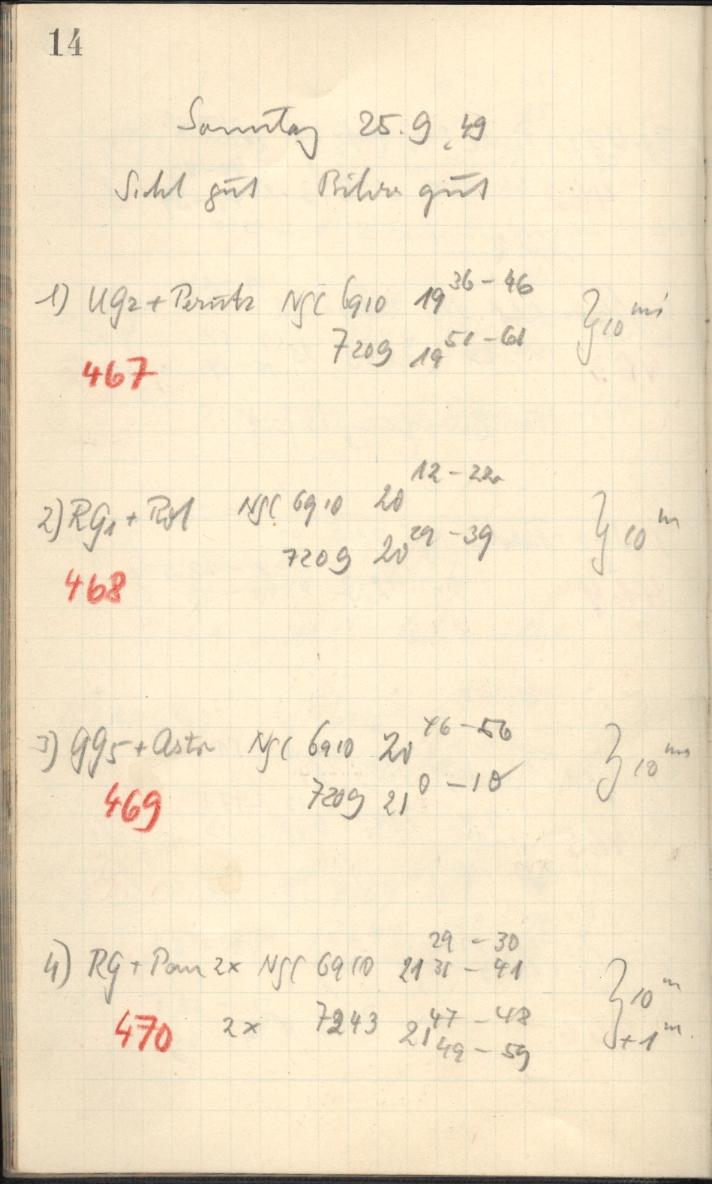 14
Sonntag 25.9.49
Sicht gut Bilder gut
1) UG2 + Perutz NGC 6910 19 36 – 46 } 10 m
7209 19 51 – 61
467
2) RG1 + NGC 6910 20 12 – 22 } 10 m
7209 20 29 – 39
468
3) GG5 + Astro NGC 6910 20 46 – 56 } 10 m
7209 21 0 – 10
469
29 – 30
4) RG + Pan 2x NGC 6910 21 31 – 41 } 10 m
470 2x 7243 21 47 – 48 + 1 m
49 – 59